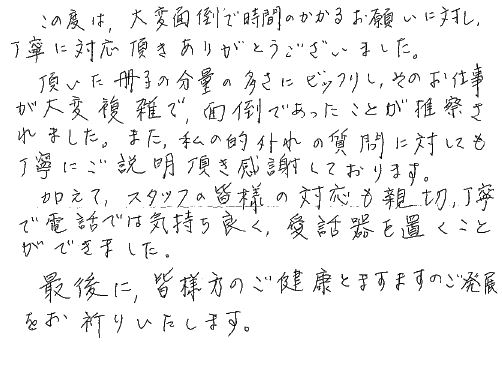 この度は,大変面倒で時間のかかるお願いに対し,
丁寧に対応頂きありがとうございました。
頂いた冊子の分量の多さにビックリし,そのお仕事
が大変複雑で,面倒であったことが推察さ
れました。また,私の的外れの質問に対しても
丁寧にご説明頂き感謝しております。
加えて,スタッフの皆様の対応も親切,丁寧
で電話では気持ち良く,受話器を置くこと
ができました。
最後に,皆様方のご健康とますますのご発展
をお祈りいたします。